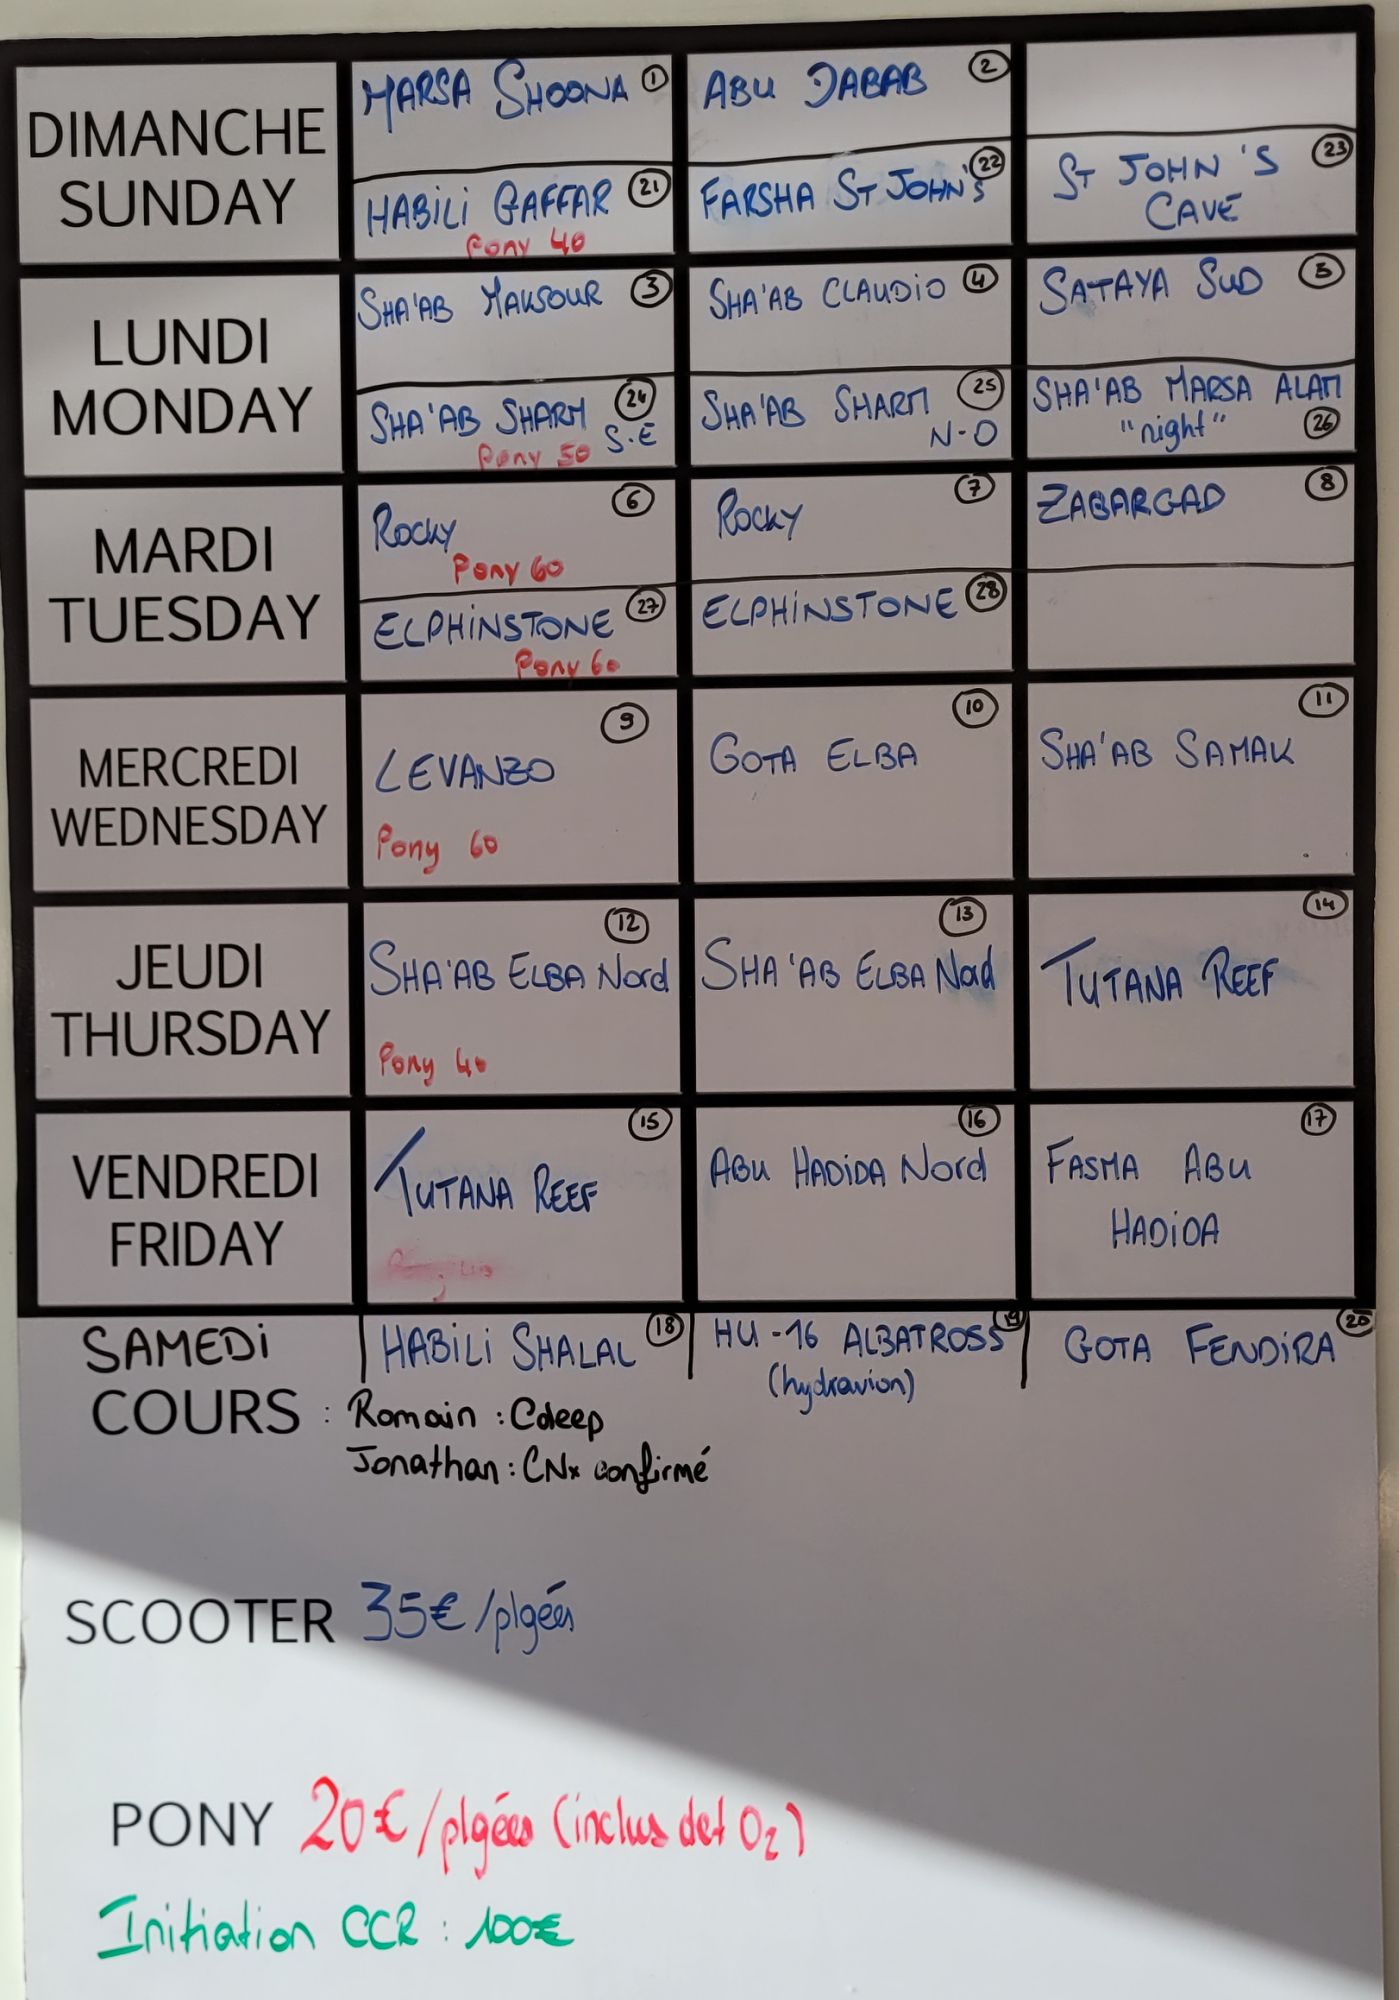 DIMANCHE
SUNDAY
MARSA SHOONA 1
ABU DABAB 2
HABiLi GAFFAR 21
Pony 40
FARSHA ST JOHN'S 22
ST JOHN'S 23
CAVE
LUNDI
MONDAY
SHA'AB MAKSOUR 3
SHA'AB CLAUDiO 4
SATAYA SUD 5
SHA'AB SHARM 24
S.E
Pony 50
SHA'AB SHARM 25
N-O
SHA'AB MARSA ALAM
"night" 26
MARDI
TUESDAY
ROCKY 6
Pony 60
ROCKY 7
ZABARGAD 8
ELPHiNSTONE 27
Pony 60
ELPHiNSTONE 28
MERCREDI
WEDNESDAY
LEVANZO 9
Pony 60
GOTA ELBA 10
SHA'AB SAMAK 11
JEUDI
THURSDAY
SHA'AB ELBA Nord 12
Pony 40
SHA'AB ELBA Nord 13
TUTANA REEF 14
VENDREDI
FRIDAY
TUTANA REEF 15
ABU HADiDA Nord 16
FASMA ABU 17
HADiDA
SAMEDi
HABiLi SHALAL 18
HU-16 ALBATROSS 19
(hydravion)
GOTA FENDiRA 20
COURS : Romain : Cdeep
Jonathan : CNx confirmé
SCOOTER 35€/plgées
PONY 20€/plgées (inclus det O2)
Initiation CCR : 100€